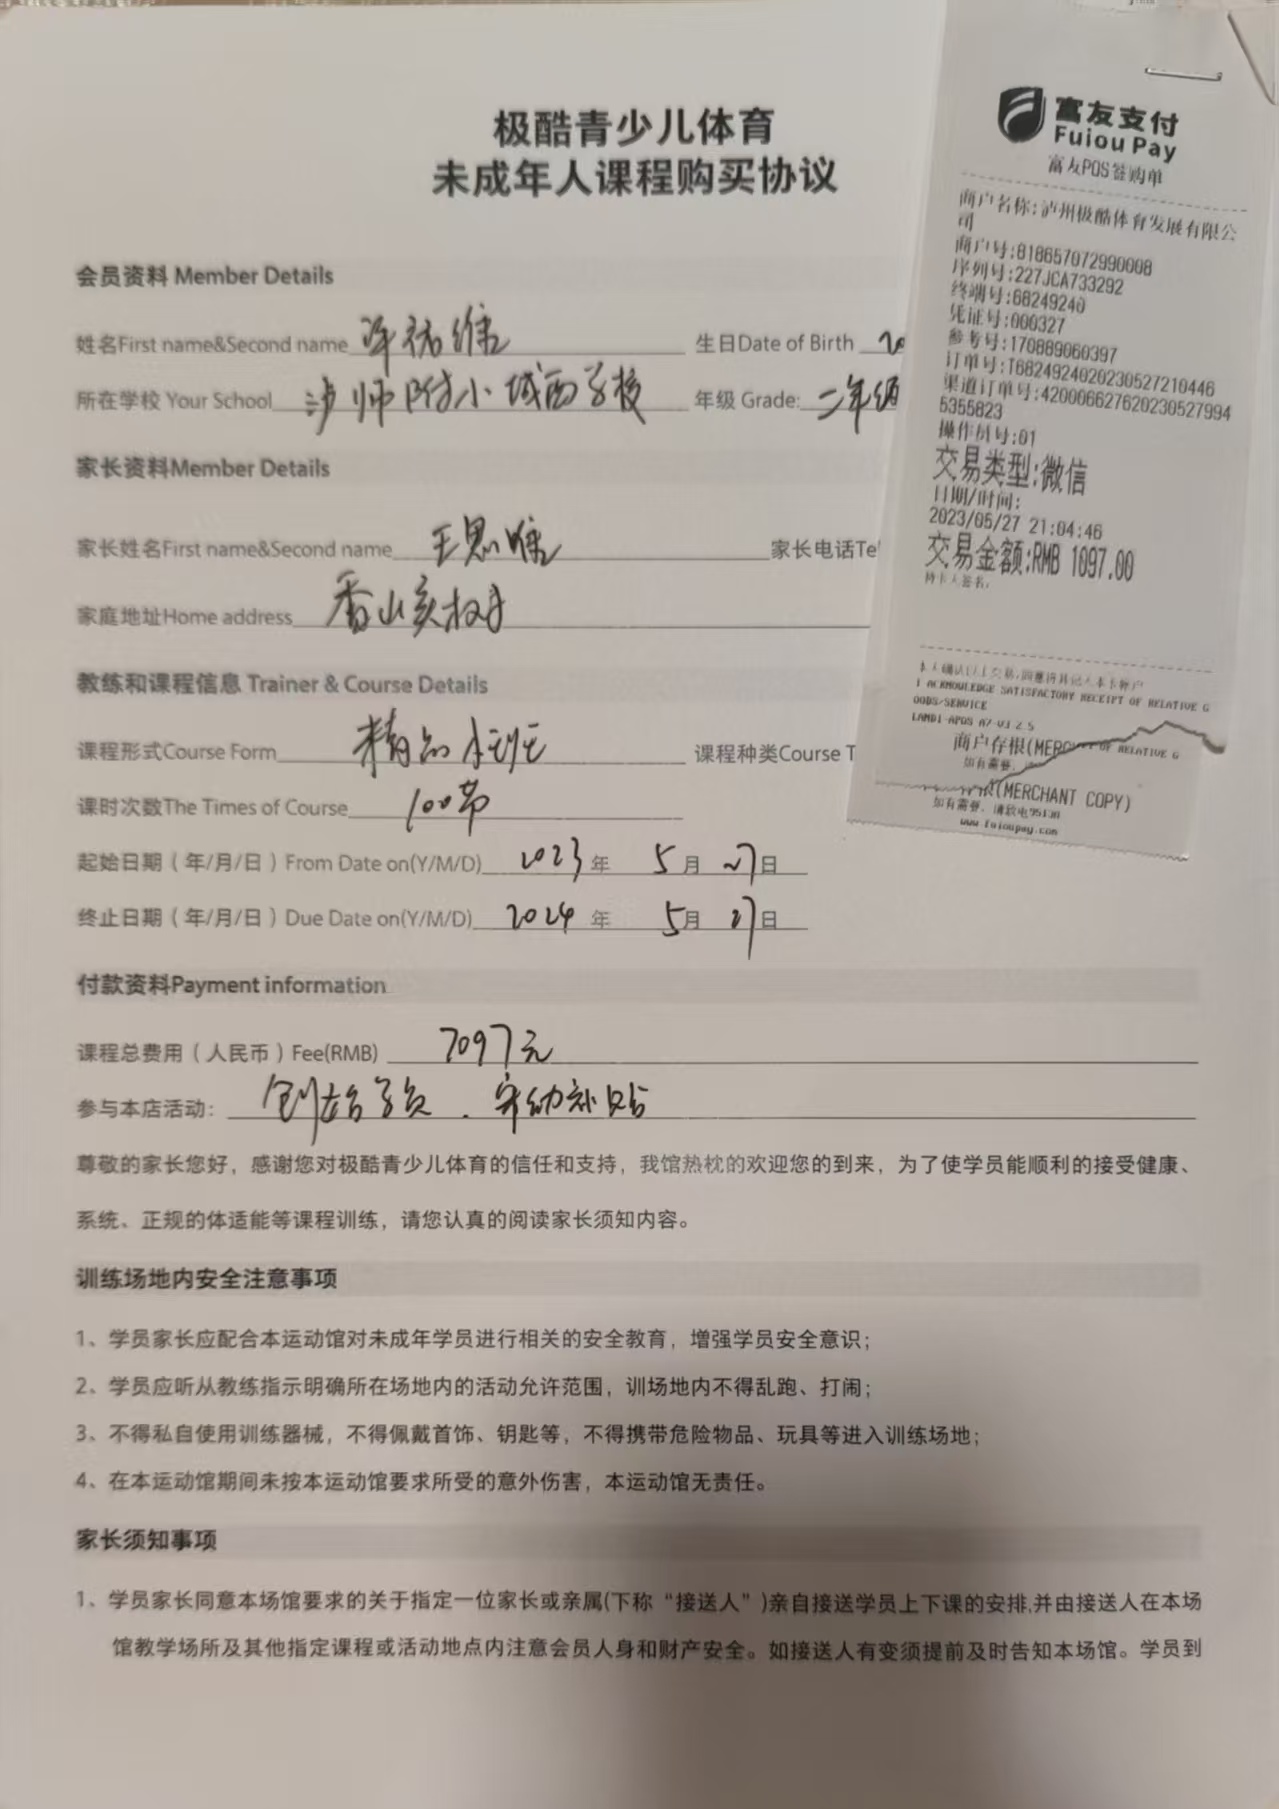 极酷青少儿体育
未成年人课程购买协议
会员资料 Member Details
姓名First name&Second name
生日Date of Birth 20
所在学校 Your School 泸师附小城西学校
年级 Grade: 二年级
家长资料Member Details
家长姓名First name&Second name 王思唯
家长电话Te
家庭地址Home address 香山
教练和课程信息 Trainer & Course Details
课程形式Course Form 精品小班
课程种类Course T
课时次数The Times of Course 100节
起始日期（年/月/日）From Date on(Y/M/D) 2023 年 5 月 27 日
终止日期（年/月/日）Due Date on(Y/M/D) 2024 年 5 月 27 日
付款资料Payment information
课程总费用（人民币）Fee(RMB) 7097元
参与本店活动： 创始学员 . 补贴
尊敬的家长您好，感谢您对极酷青少儿体育的信任和支持，我馆热枕的欢迎您的到来，为了使学员能顺利的接受健康、
系统、正规的体适能等课程训练，请您认真的阅读家长须知内容。
训练场地内安全注意事项
1、学员家长应配合本运动馆对未成年学员进行相关的安全教育，增强学员安全意识；
2、学员应听从教练指示明确所在场地内的活动允许范围，训场地内不得乱跑、打闹；
3、不得私自使用训练器械，不得佩戴首饰、钥匙等，不得携带危险物品、玩具等进入训练场地；
4、在本运动馆期间未按本运动馆要求所受的意外伤害，本运动馆无责任。
家长须知事项
1、学员家长同意本场馆要求的关于指定一位家长或亲属(下称“接送人”)亲自接送学员上下课的安排,并由接送人在本场
馆教学场所及其他指定课程或活动地点内注意会员人身和财产安全。如接送人有变须提前及时告知本场馆。学员到
富友支付
Fuiou Pay
富友POS签购单
商户名称:泸州极酷体育发展有限公
司
商户号:818657072990008
序列号:227JCA733292
终端号:68249240
凭证号:000327
参考号:170889060397
订单号:T6824924020230527210446
渠道订单号:420006627620230527994
5355823
操作员号:01
交易类型:微信
日期/时间:
2023/05/27 21:04:46
交易金额:RMB 1097.00
持卡人签名:
本人确认以上交易,同意将其记入本卡账户
I ACKNOWLEDGE SATISFACTORY RECEIPT OF RELATIVE G
OODS/SERVICE
LANDI-APOS A7-V3.2.5
商户存根(MERC OF RELATIVE G
如有需要,
(MERCHANT COPY)
如有需要, 请致电95138
www.fuioupay.com